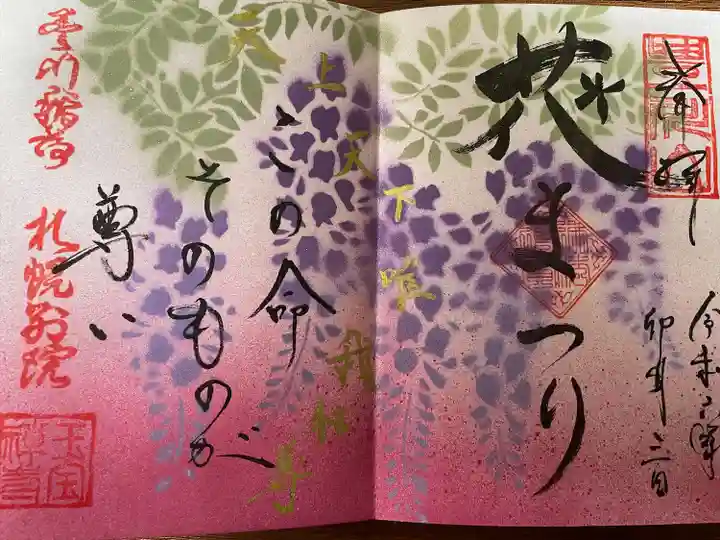 奉拝
令和五年
卯年 三日
花まつり
天上天下唯我独尊
この命
そのものが
尊い
豊川稲荷
札幌別院